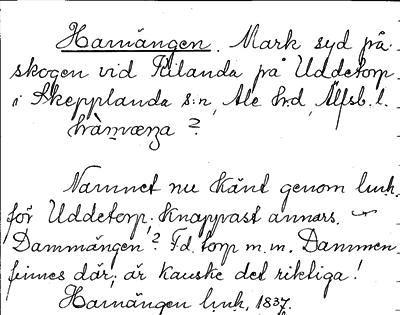 Hamängen. Mark syd på
skogen vid Rålanda på Uddetorp
i Skepplanda s:n, Ale hrd, Älfsb. l.
?
Namnet nu känt genom
för Uddetorp; knappast annars.
Dammängen? F.d. torp m.m. Dammen
finnes där; är kanske det riktiga!
Hamängen 1837.